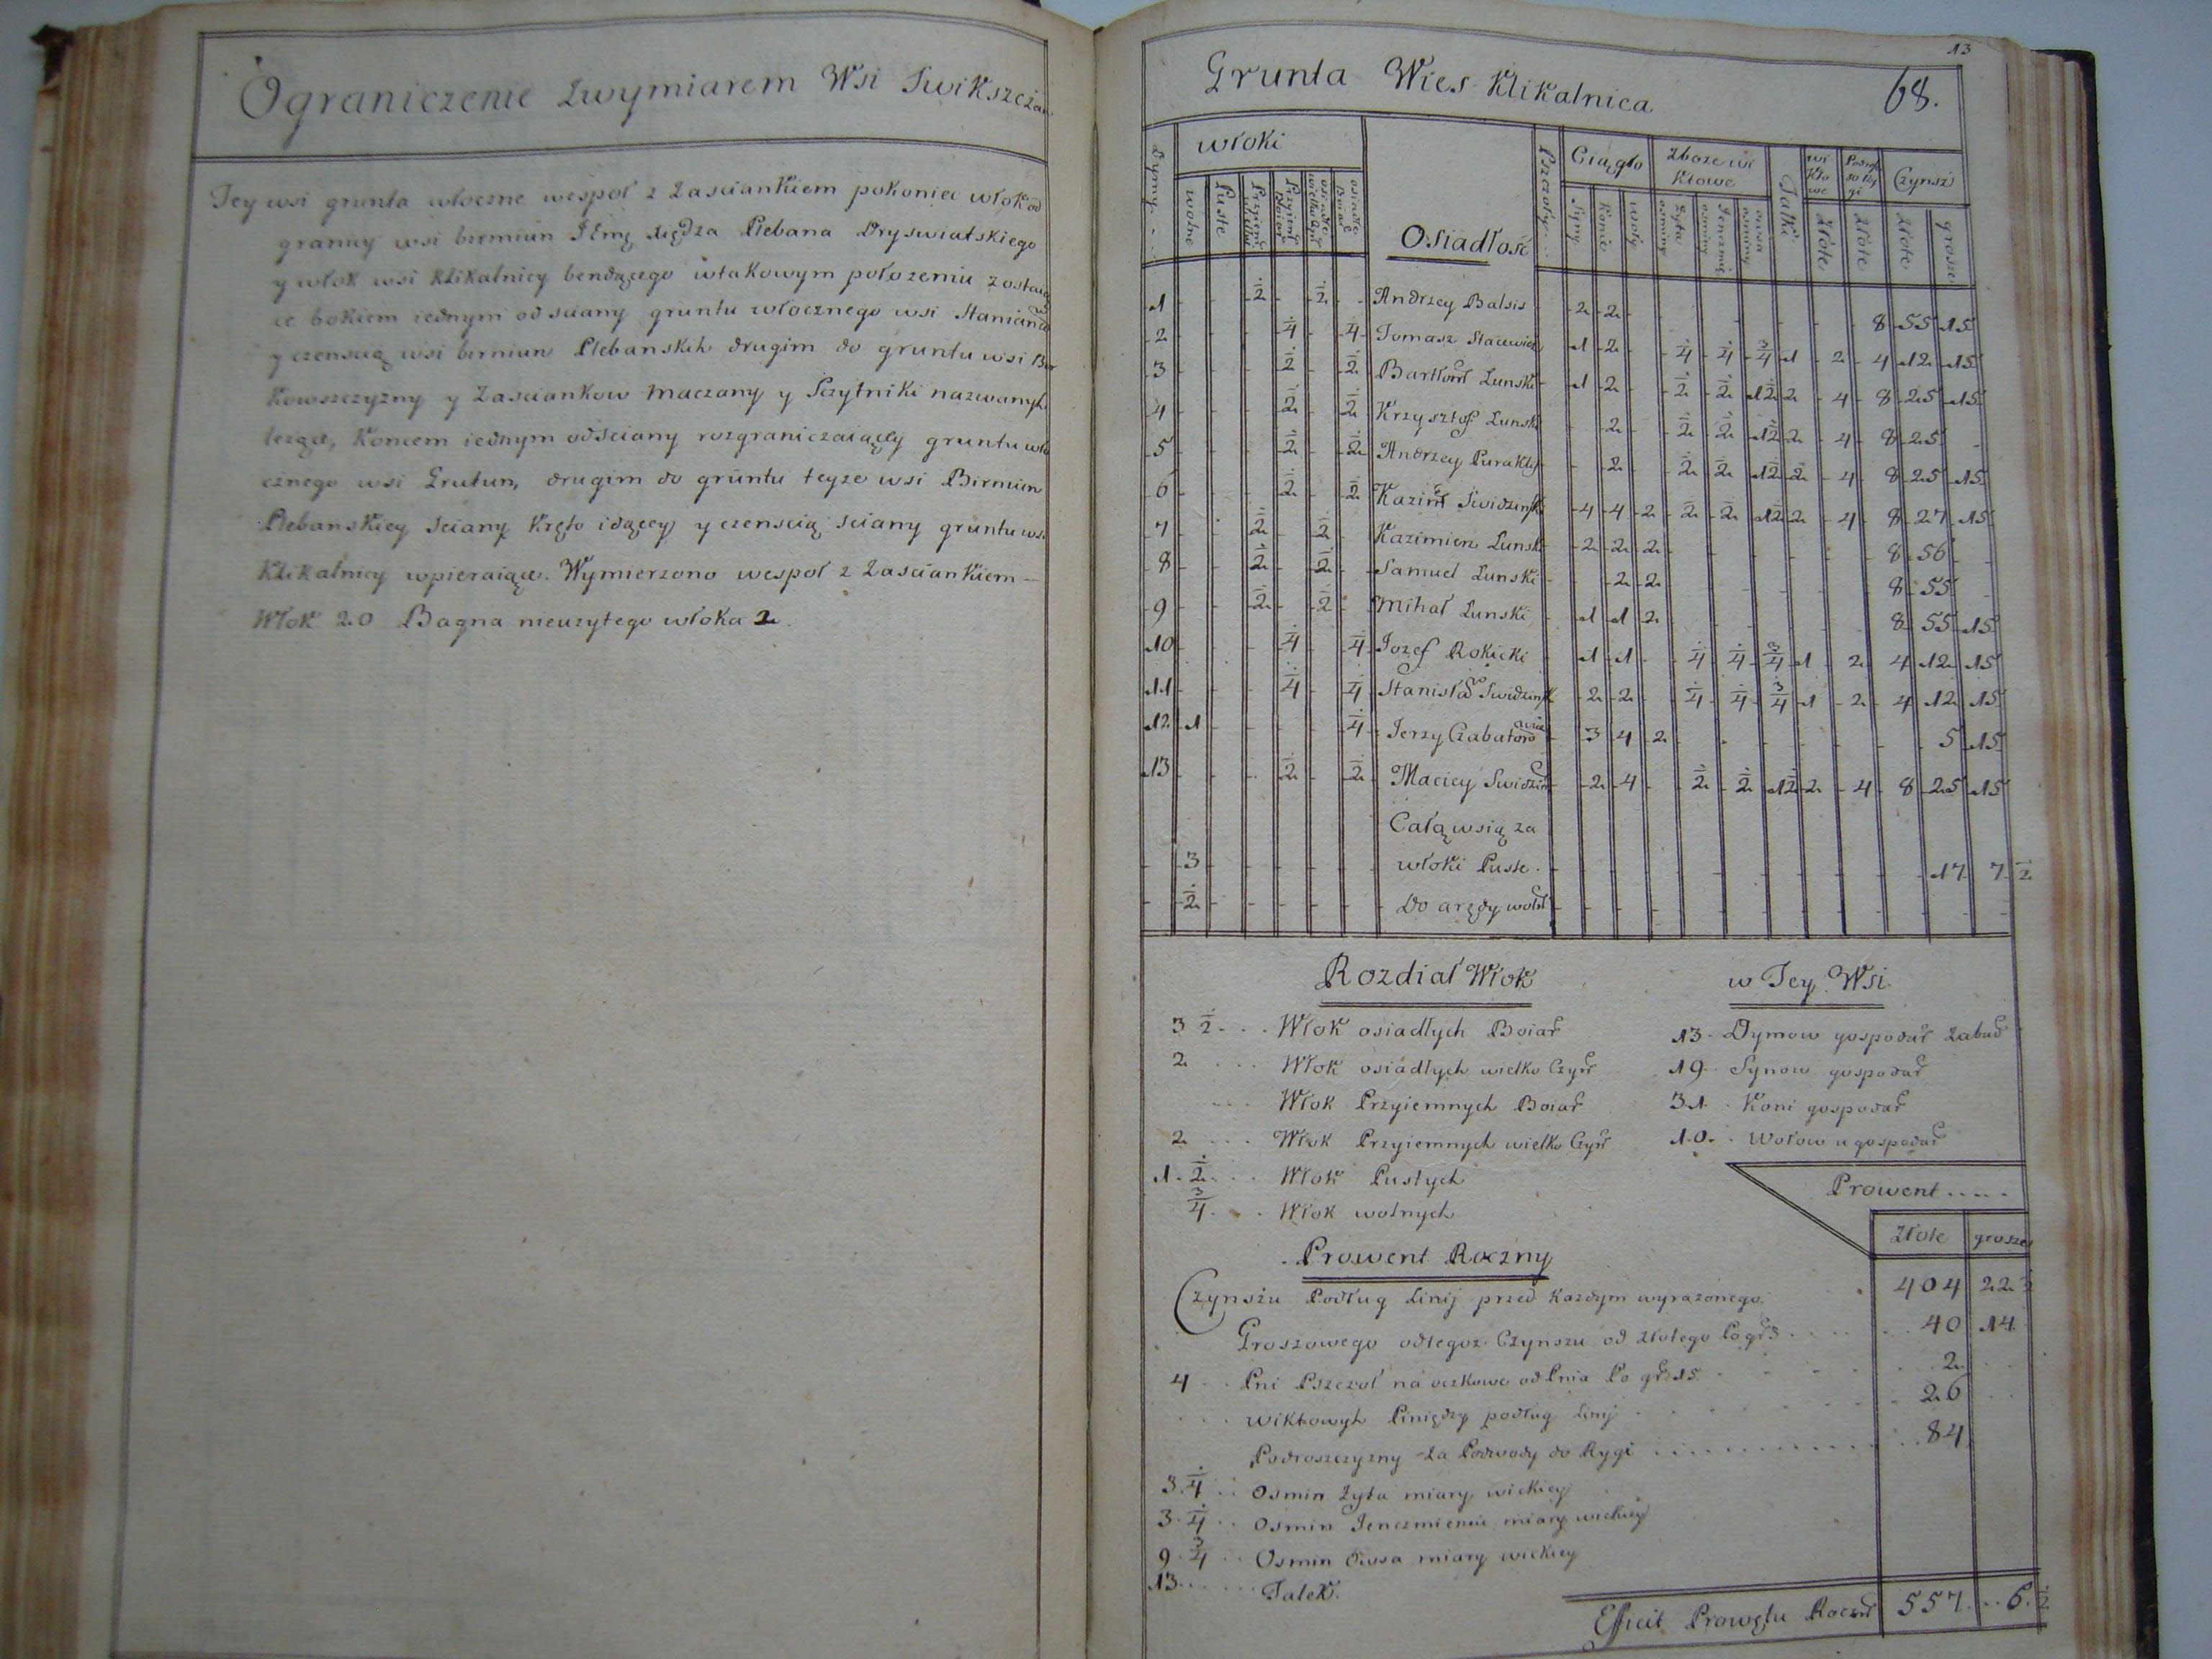 Ograniczenie zwymiarem Wsi Swikszczan
Tey wsi grunta włoczne wespoł z Zasciankiem pokoniec włok od
granicy wsi birmiun Plebana Dryswiatskiego
y włok wsi Klikalnicy bendącego wtakowym położeniu zostaią
ce bokiem iednym od sciany gruntu włocznego wsi
y czenscią wsi birniun Plebanskich drugim do gruntu wsi Bor
kowszczyzny y Zasciankow Maczany y Sczytniki nazwanych
lezące, Koncem iednym odsciany rozgraniczaiącey gruntu wło
cznego wsi Grutun, drugim do gruntu teyze wsi Birniun
Plebanskiey sciany Kręto idącey y czenscią sciany gruntu wsi
Klikalnicy wpieraiące. Wymierzono wespoł z Zasciankiem
Włok 20 Bagna nieuzytego włoka 2.
13
Grunta Wies Klikalnica 68.
Dymy włoki Osiadłosć Pszczoły Ciągło Zboze wikłowe Talki Czynsz
wolne Puste Synỹ Konie Woły Złote Złote Złote grosze
1 ½ ½ Andrzey Balsis 2 2 8 55 15
2 ¼ ¼ Tomasz Stacewicz 1 2 ¼ ¼ ¾ 1 2 4 12 15
3 ½ ½ Bartłom Lunski 1 2 ½ ½ 1½ 2 4 8 25 15
4 ½ ½ Krzysztof Lunski 2 ½ ½ 1½ 2 4 8 25
5 ½ ½ Andrzey Purakly 2 ½ ½ 1½ 2 4 8 25 15
6 ½ ½ Kazim Swidzinsk 4 4 2 ½ ½ 1½ 2 4 8 27 15
7 ½ ½ Kazimierz Lunski 2 2 2 8 56
8 ½ ½ Samuel Lunski 2 2 8 55
9 ½ ½ Mihał Lunski 1 1 2 8 55 15
10 ¼ ¼ Jozef Rokicki 1 1 ¼ ¼ ¾ 1 2 4 12 15
11 ¼ ¼ Stanisław Swidzinsk 2 2 ¼ ¼ ¾ 1 2 4 12 15
12 1 ¼ Jerzy Czabatorowicz 3 4 2 5 15
13 ½ ½ Maciey Swidzin 2 4 ½ ½ 1½ 2 4 8 25 15
Całą wsią za
3 włoki Puste 17 7 ½
½ Do arędy wolst
Rozdiał Włok
3 ½ Włok osiadłych Boiar
2 Włok osiadłych wielko Czyn
Włok Przyiemnych Boiar
2 Włok Przyiemnych wielko Czyn
1 ½ Włok Pustych
¾ Włok wolnych
w Tey Wsi
13 Dymow gospodar Zabud
19 Synow gospodar
31 Koni gospodar
10 Wołow u gospodar
Prowent
Złote grosze
Prowent Roczny
Czynszu Podług Linij przed Kazdym wyrazonego 404 22 ½
Groszowego odtegoz Czynszu od złotego Po gr 3 40 14
4 Pni Pszczoł na oczkowe od Pnia Po gr 15 2
wiktowych Piniędzy podług Linij 26
Podroszczyzny Za Podwody do Rygi 84
3 ¼ Osmin Zyta miary wickiey
3 ¼ Osmin Jenczmieniu miary wickiey
9 ¾ Osmin Owsa miary wickiey
13 Talek
Efficit Prowętu Roczn 557 6 ½